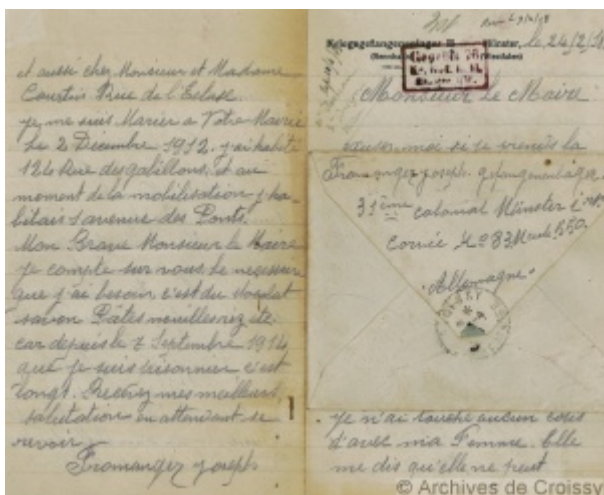 et aussi chez Monsieur et Madame
Courtois Rue de l'Ecluse.
je me suis Marier a Votre Mairie
Le 2 Décembre 1912. j'ai habité
124 Rue des gabillons. et au
moment de la mobilisation j'ha-
bitais 1 avenue des Ponts.
Mon Brave Monsieur le Maire
je compte sur vous. le necessaire
que j'ai besoin c'est du chocolat
savon Pâtes nouilles riz etc
car depuis le 7 Septembre 1914
que je suis prisonnier c'est
longs. Recevez mes meilleurs
salutation en attendant se
revoir
Fromanger joseph
Kriegsgefangenenlager III Münster, le 24/2/18
Geprüft
Monsieur Le Maire
excuser moi si je viens la
Fromanger joseph. gefangenenlager
colonial Münster
Corvée No 83
Allemagne
je n'ai touché aucun colis
d'avec ma Femme. Elle
me dis qu'elle ne peut
© Archives de Croissy